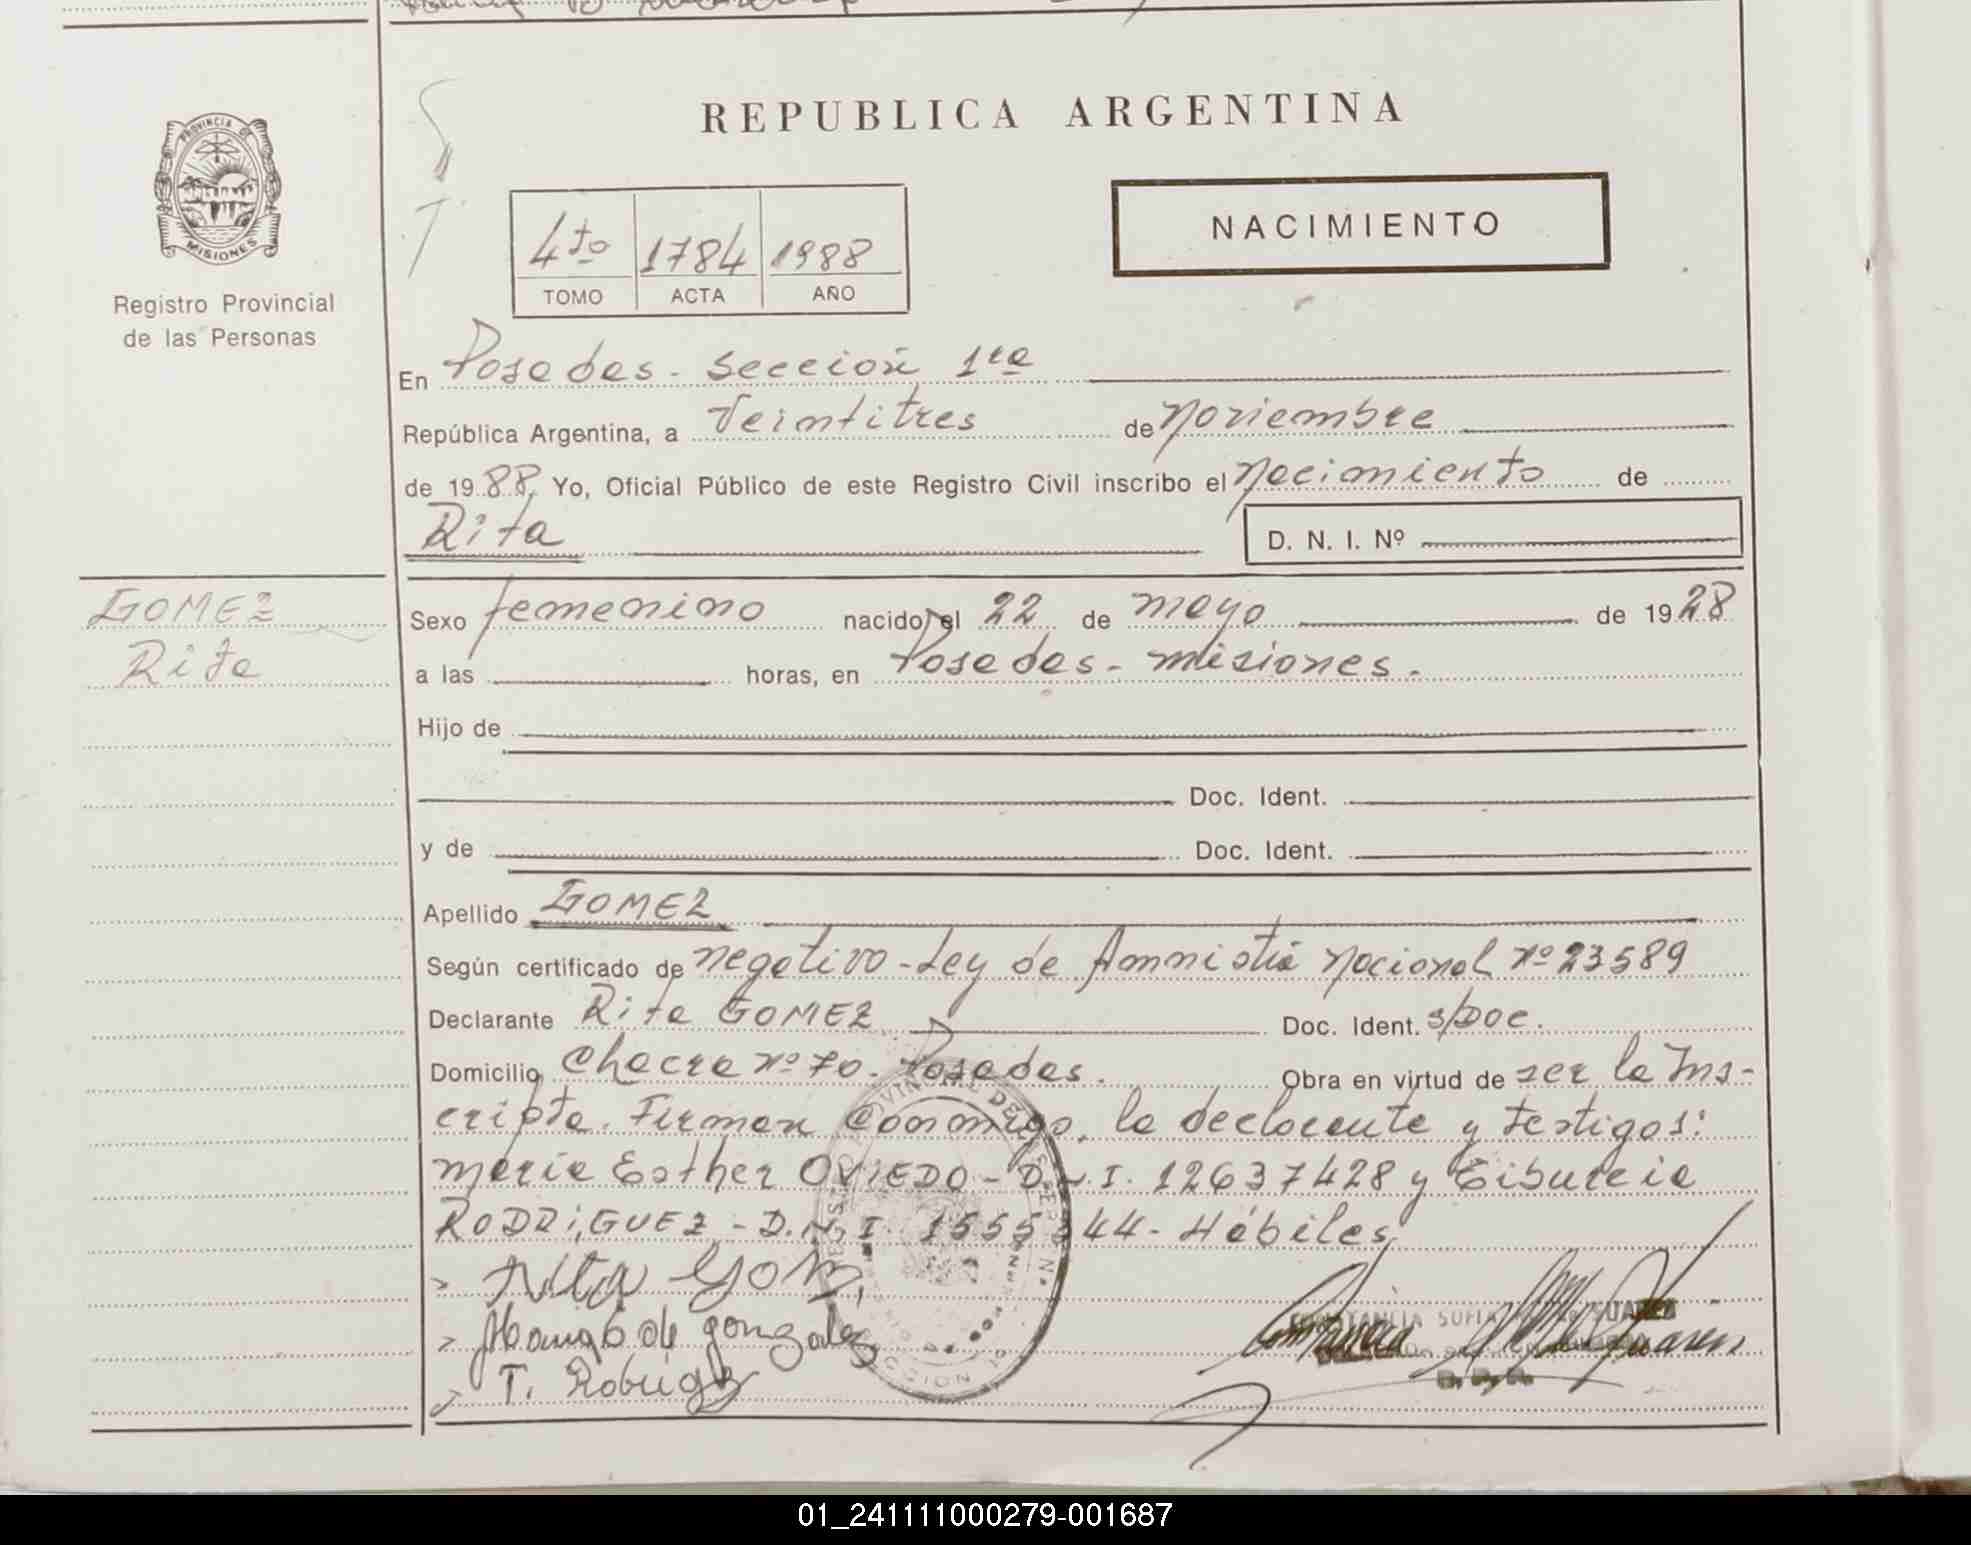 REPUBLICA ARGENTINA
PROVINCIA DE
MISIONES
Registro Provincial
de las Personas
4to 1784 1988
TOMO ACTA AÑO
NACIMIENTO
En Posadas - Sección 1ra
República Argentina, a Veintitres de Noviembre
de 1988, Yo, Oficial Público de este Registro Civil inscribo el Nacimiento de
Rita
D. N. I. Nº
GOMEZ
Rita
Sexo femenino nacido el 22 de mayo de 1928
a las horas, en Posadas - Misiones.
Hijo de
Doc. Ident.
y de Doc. Ident.
Apellido GOMEZ
Según certificado de negativo - Ley de Amnistia Nacional nº 23589
Declarante Rita GOMEZ Doc. Ident. s/Doc.
Domicilio Chacra nº 70. Posadas. Obra en virtud de ser la Ins-
cripta. Firman conmigo, la declarante y testigos:
María Esther OVIEDO - D.N.I. 12637428 y Tiburcia
RODRIGUEZ - D.N.I. 1555344 - Hábiles
Rita Gom
de gonzalez
T. Rodrigz
CONSTANCIA SOFIA SUAREZ
01_241111000279-001687